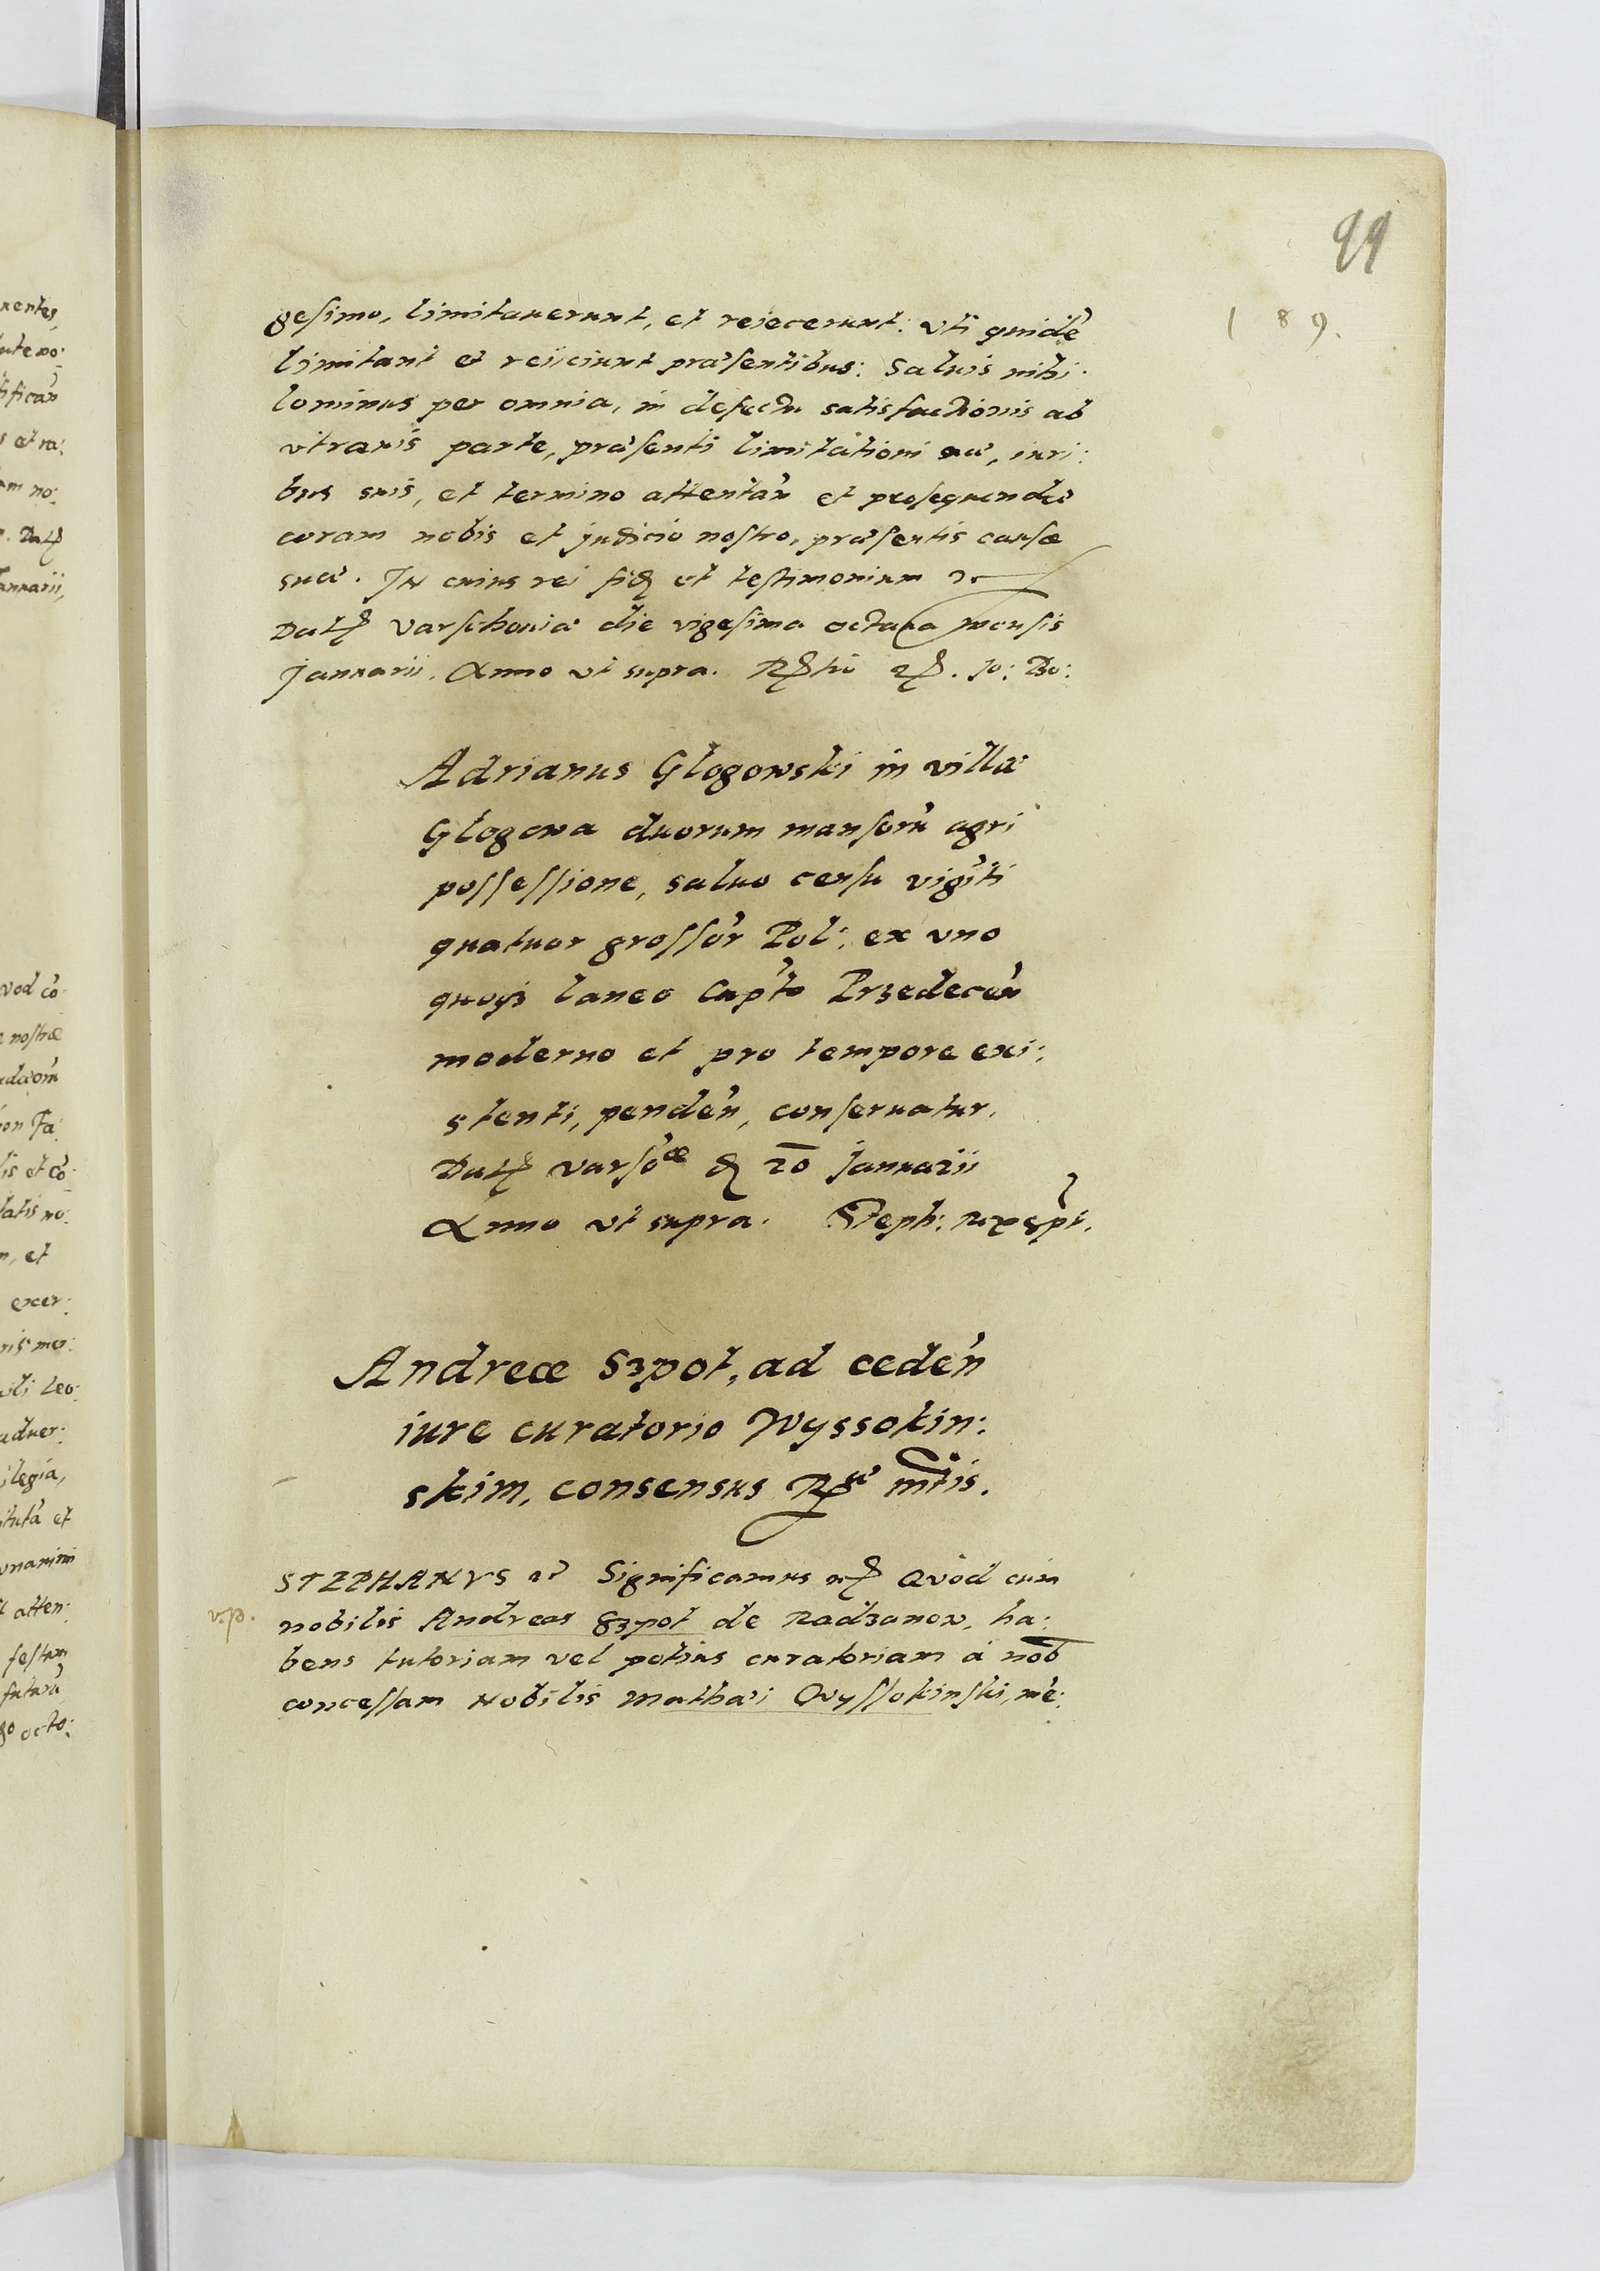 99
189.
gesimo, limitauerunt, et reiecerunt: vti quidē
limitant et reiiciunt præsentibus: Saluis nihi:
lominus per omnia, in defectu satisfactionis ab
vtrauis parte, præsenti limitationi suæ, iuri:
bus suis, et termino attentan̄ et prosequendæ
coram nobis et judicio nostro, præsentis causæ
suæ. IN cuius rei fid et testimonium
Dat Varschouiæ die vigesima octaua mensis
Januarii. Anno vt supra. Jo: Bo:
Adrianus Glogowski in villa
Glogowa duorum mansorū agri
possessione, saluo censu vigīti
quatuor grossor̄ Pol: ex vno
quoqȝ laneo Capto Przedecen̄
moderno et pro tempore exi:
stenti, penden̄, conseruatur.
Dat Varsoæ d 20 Januarii
Anno vt supra. Steph:
Andreæ Szpot, ad ceden̄
iure curatorio Wyssokin:
skim, consensus Ræ mtis.
STEPHANVS Significamus Qvod cum
v.p.
nobilis Andreas Szpot de Radzanow, ha:
bens tutoriam vel potius curatoriam à nob
concessam Nobilis Mathæi Wyssokinski, mē:
nentes,
ute no:
tifican̄
s et ra:
am no:
. Dat
Januarii,
vod cō
e nostræ
on Fa:
lis et cō
tatis no:
m, et
exer:
nis mo:
ili Leo:
aduer:
ilegia,
ituta et
vnanimi
t atten:
festum
futura
octo: